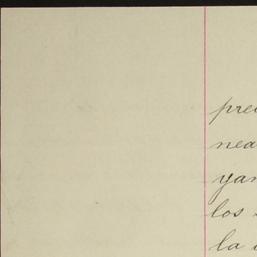 prec
nea
yan
los
la